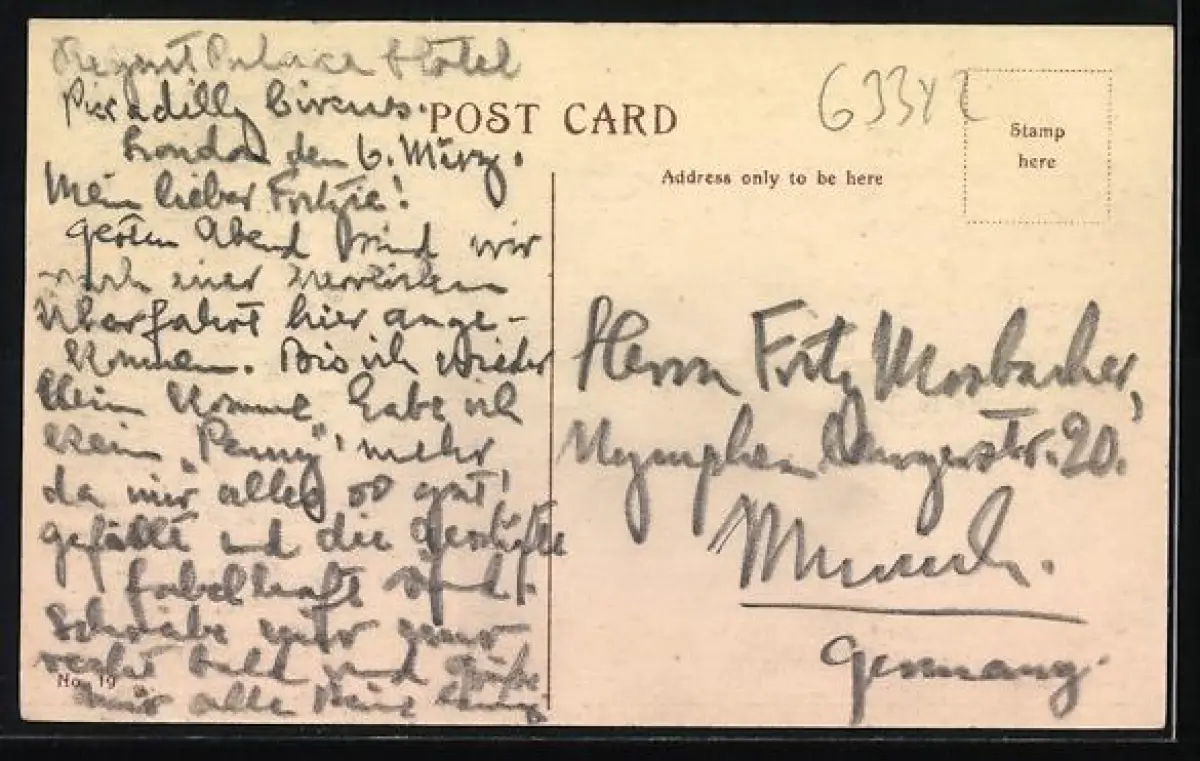 Regent Palace Hotel
Piccadilly Circus.
London den 6. März.
Mein lieber Fritzie!
gestern Abend sind wir
nach einer herrlichen
Überfahrt hier ange-
kommen. Bis ich wieder
heim komme, habe ich
kein "Penny" mehr
da mir alles so gut
gefällt und die Geschäfte
fabelhaft sind.
Schreibe mir
recht bald und grüße
mir alle
No. 19
POST CARD
Address only to be here
Stamp
here
6334
Herrn Fritz Mosbacher,
Nymphenburgerstr. 20.
Munich.
Germany.